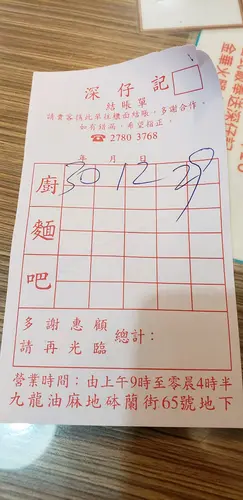 深仔記
結賬單
請貴客憑此單往櫃面結賬,多謝合作。
如有錯漏,希望指正。
☎ 2780 3768
年 月 日
30 12 29
廚
麵
吧
多謝惠顧
總計:
請再光臨
營業時間:由上午9時至零晨4時半
九龍油麻地砵蘭街65號地下